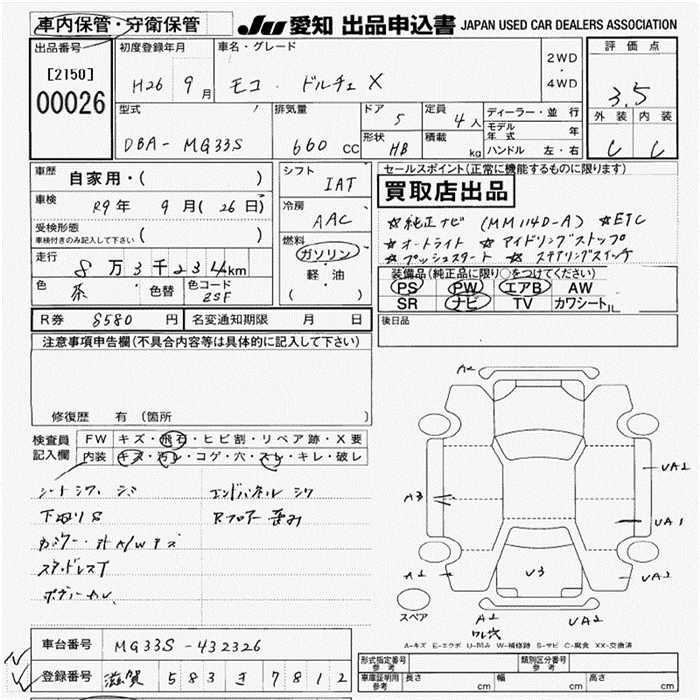 車内保管・守衛保管
JU 愛知 出品申込書 JAPAN USED CAR DEALERS ASSOCIATION
出品番号
[2150]
00026
初度登録年月
H26 9月
車名・グレード
モコ ドルチェ X
2WD
・
4WD
評価点
3.5
外装 内装
C C
型式
DBA- MG33S
排気量
660 cc
ドア 5
定員 4人
形状 HB
積載 kg
ディーラー・並行
モデル年式 年
ハンドル 左・右
車歴 自家用・( )
車検 R9年 9月(26日)
受検形態
車検付きのみ記入して下さい ( )
走行 8万3千234km
色 茶 色替 色コード ZSF
シフト IAT
冷房 AAC
燃料
ガソリン
・
軽・油
( )
セールスポイント(正常に機能するものに限ります)
買取店出品
☆純正ナビ (MM114D-A) ☆ETC
☆オートライト ☆アイドリングストップ
☆プッシュスタート ☆ステアリングスイッチ
装備品(純正品に限り○をつけてください)
PS PW エアB AW
SR ナビ TV カワシート
後日品
R券 8580円 名変通知期限 月 日
注意事項申告欄(不具合内容等は具体的に記入して下さい)
修復歴 有(箇所
検査員記入欄
FW キズ・飛石・ヒビ割・リペア跡・X要
内装 キズ・汚レ・コゲ・穴・スレ・キレ・破レ
シートシワ シミ エンドパネル シワ
下回りS Rフロアー 歪み
カバー・汁A/Wキズ
ボディーカム
A2
A3
UA2
UA1
A2
U3
UA2
A2
UA2
スペア
A-キズ E-エクボ U-凹み W-補修跡 S-サビ C-腐食 XX-交換済
車台番号 MG33S-432326
登録番号 滋賀 583 き 7812
形式指定番号 参考
類別区分番号 参考
車庫証明用 参考 長さ cm 幅 cm 高さ cm